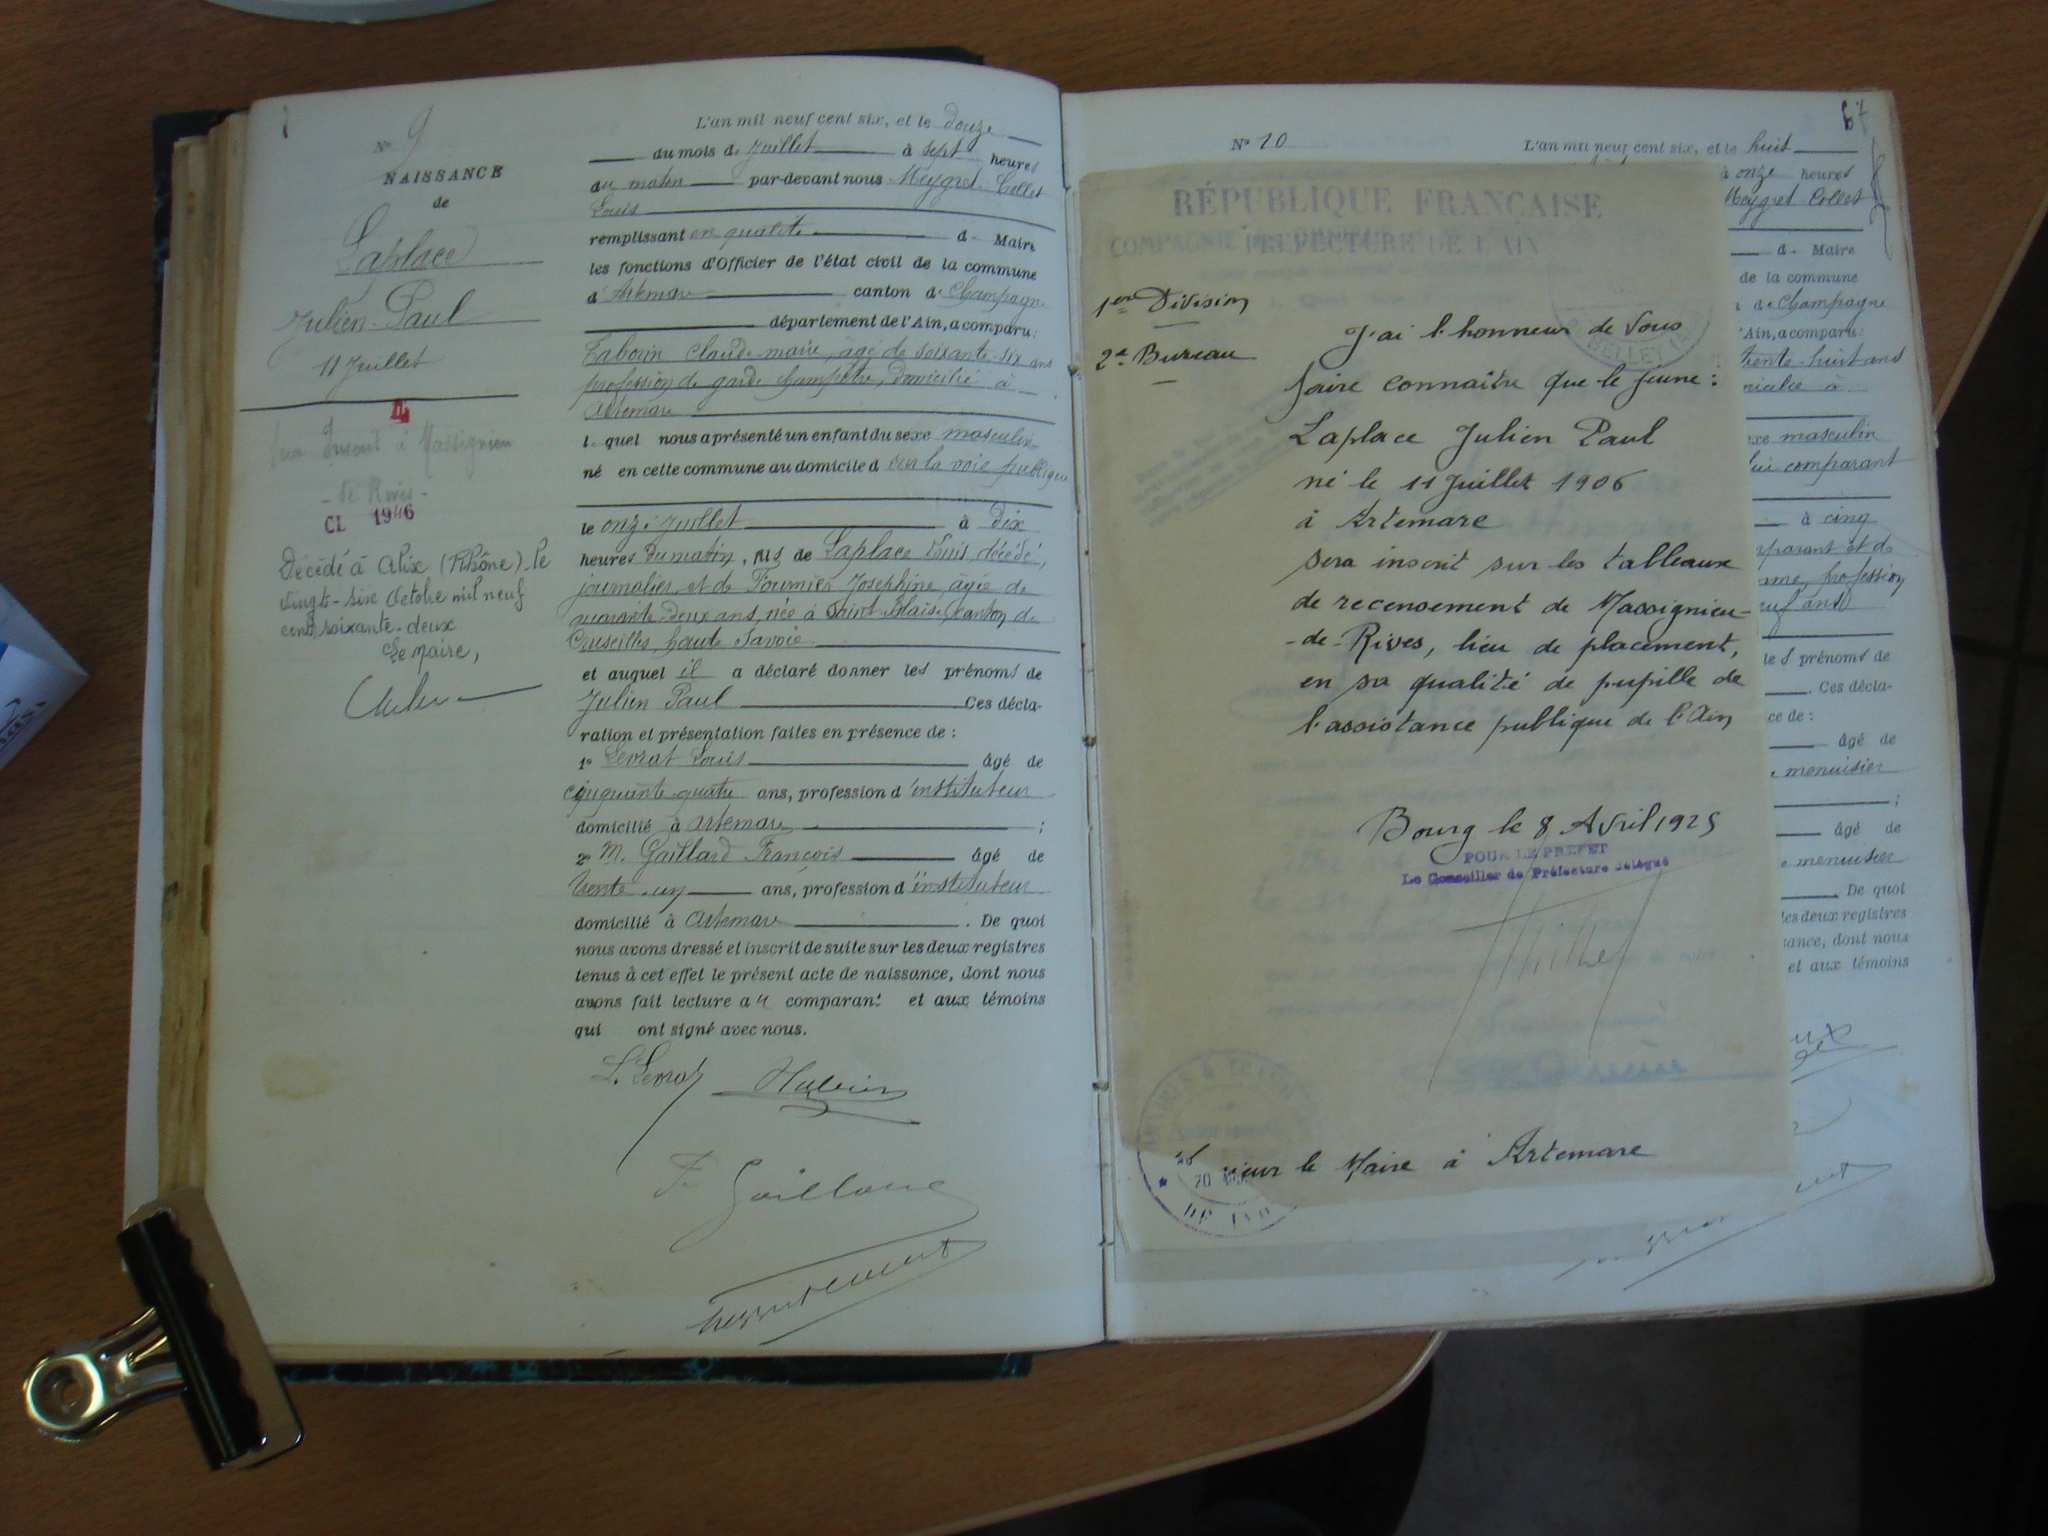 N° 9
NAISSANCE
de
Laplace
Julien-Paul
11 Juillet
de Rives
CL 1946
Décédé à Alix (Rhône) le
vingt-six Octobre mil neuf
cent soixante-deux
Le Maire,
L'an mil neuf cent six, et le douze
du mois de Juillet à sept heures
du matin par-devant nous Meygret Collet
Louis
remplissant en qualité de Maire
les fonctions d'Officier de l'état civil de la commune
d'Artemare canton de Champagne
département de l'Ain, a comparu:
Claude marie, âgé de soixante-six ans
profession de garde champêtre, domicilié à
Artemare
lequel nous a présenté un enfant du sexe masculin
né en cette commune au domicile d sur la voie publique
le onze Juillet à Dix
heures du matin, fils de Laplace Louis, décédé,
journalier, et de Fournier Joséphine, âgée de
quarante-deux ans, née à Saint Blaise, canton de
Cruseilles, haute Savoie
et auquel il a déclaré donner les prénoms de
Julien Paul Ces décla-
ration et présentation faites en présence de :
1° Louis âgé de
cinquante-quatre ans, profession d'instituteur
domicilié à Artemare ;
2° M. Gaillard François âgé de
trente-un ans, profession d'instituteur
domicilié à Artemare. De quoi
nous avons dressé et inscrit de suite sur les deux registres
tenus à cet effet le présent acte de naissance, dont nous
avons fait lecture au comparant et aux témoins
qui ont signé avec nous.
F. Gaillard
67
N° 10
L'an mil neuf cent six, et le huit
à onze heures
Meygret Collet
d- Maire
de la commune
de Champagne
l'Ain, a comparu:
trente-huit ans
masculin
lui comparant
à cinq
profession
les prénoms de
Ces décla-
ce de :
âgé de
menuisier
;
âgé de
menuisier
De quoi
les deux registres
sance, dont nous
et aux témoins
RÉPUBLIQUE FRANÇAISE
PRÉFECTURE DE L'AIN
1ère Division
2e Bureau
J'ai l'honneur de vous
faire connaître que le jeune :
Laplace Julien Paul
né le 11 Juillet 1906
à Artemare
sera inscrit sur les tableaux
de recensement de Massignieu-
-de-Rives, lieu de placement,
en sa qualité de pupille de
l'assistance publique de l'Ain
Bourg le 8 Avril 1925
POUR LE PRÉFET
Le Conseiller de Préfecture délégué
le Maire à Artemare